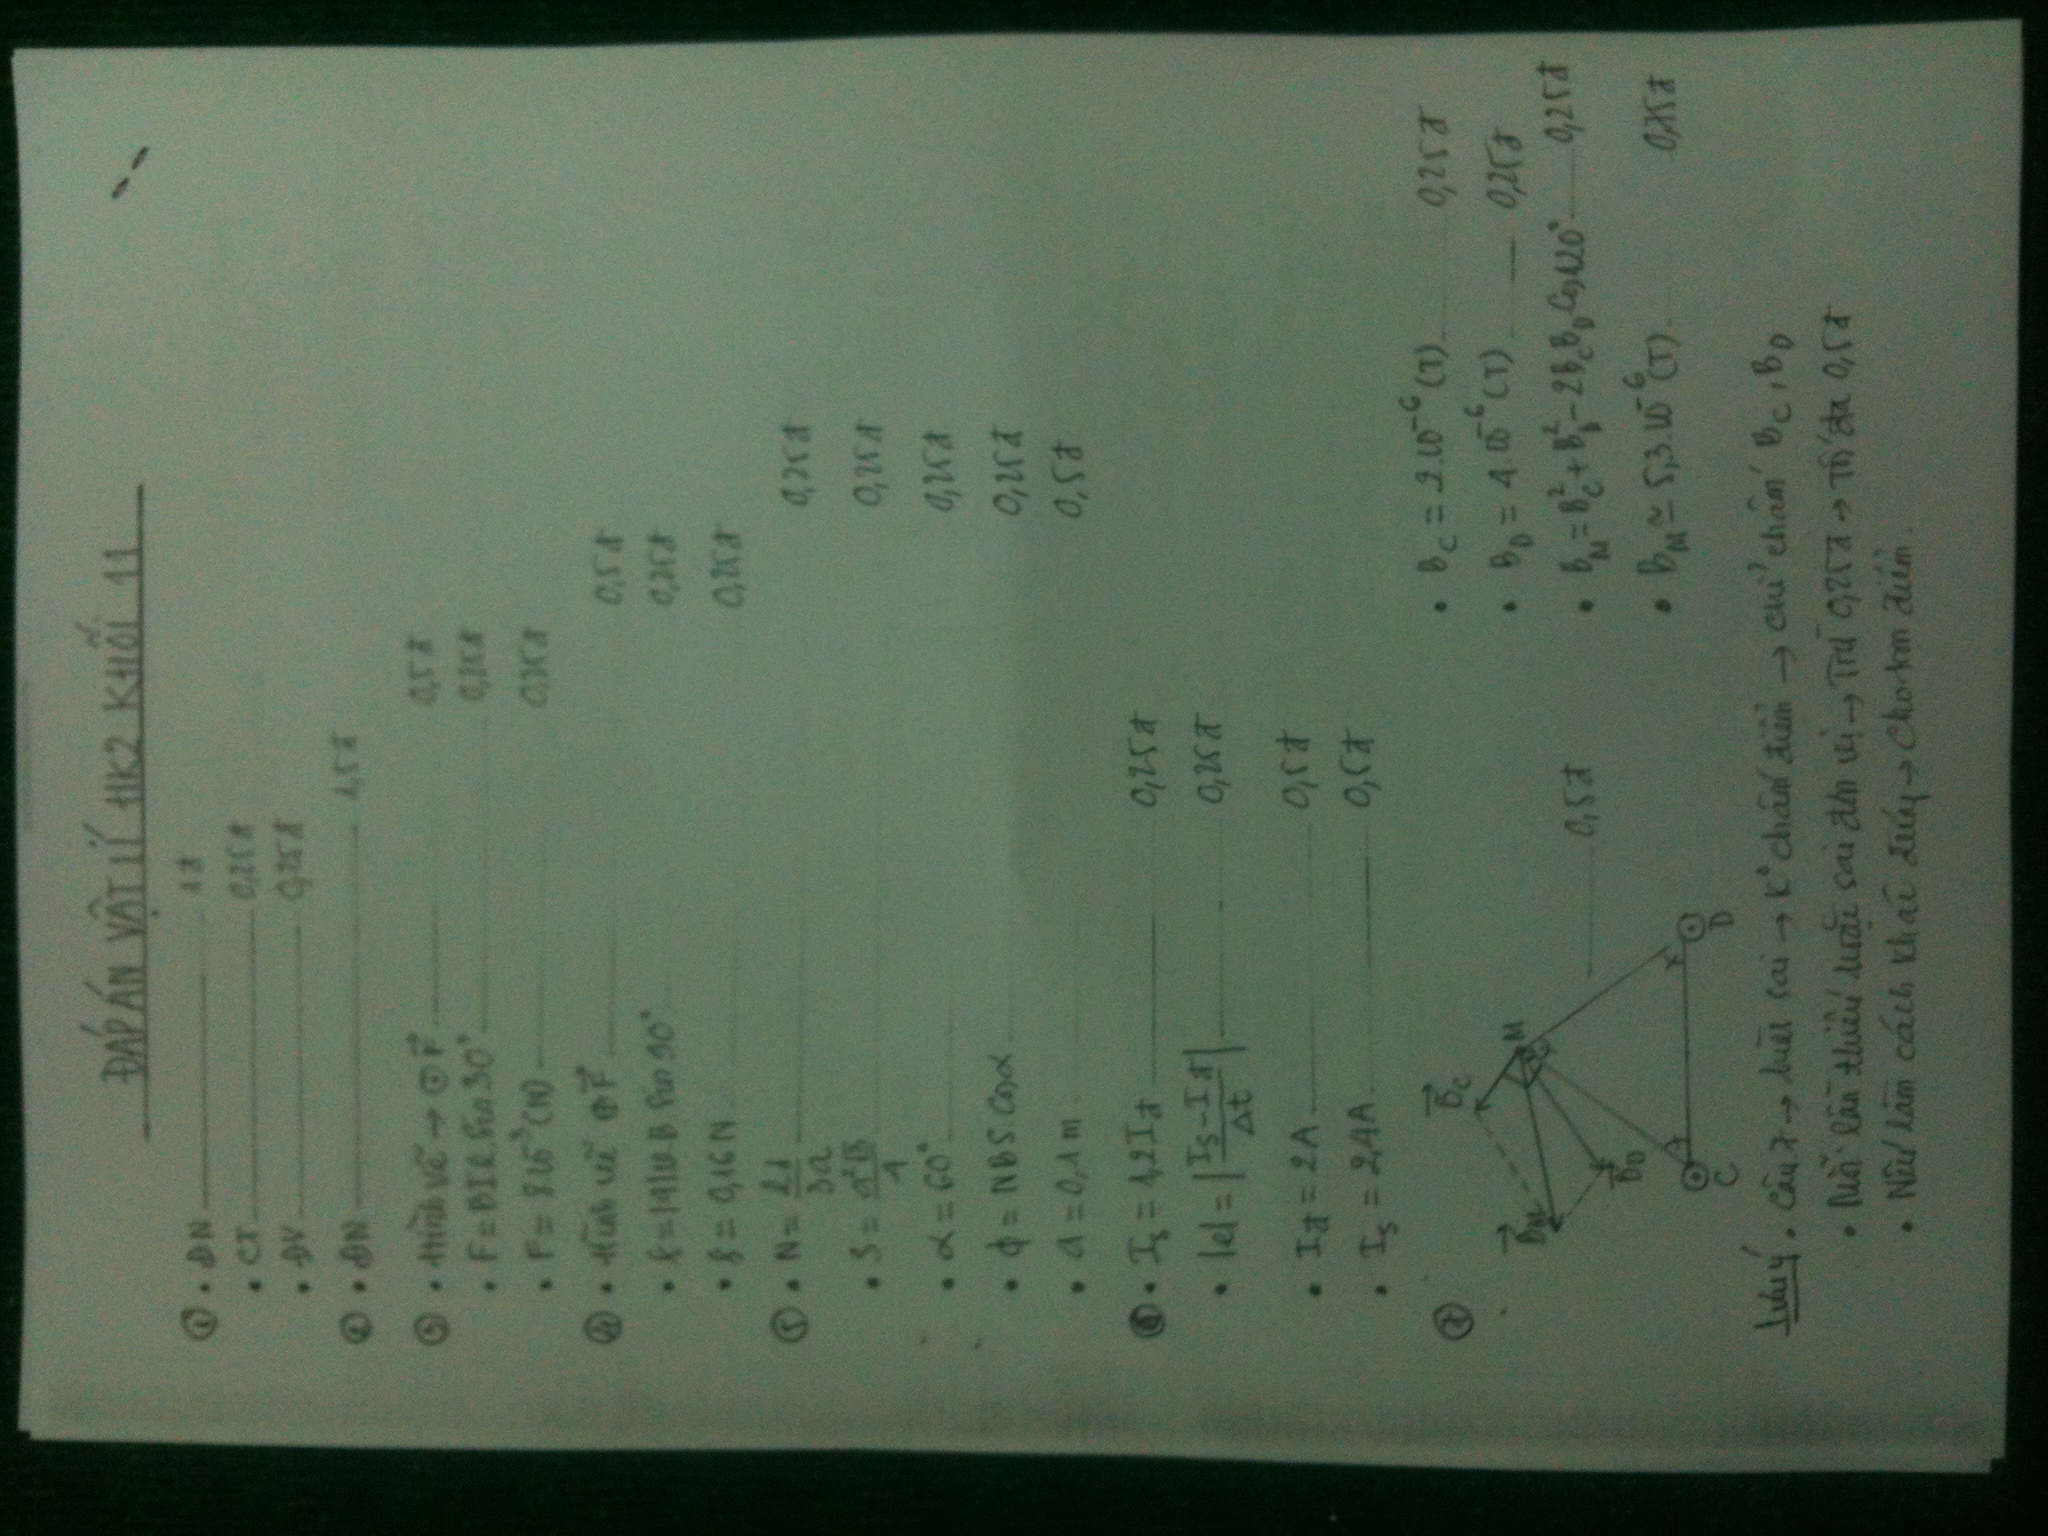 ĐÁP ÁN VẬT LÍ HK2 KHỐI 11
① • ĐN 1đ
• CT 0,25đ
• ĐV 0,25đ
② • ĐN 1,5đ
③ • Hình vẽ → ⊙ F⃗ 0,5đ
• F = BIl.sin 30° 0,25đ
• F = 8.10⁻³ (N) 0,25đ
④ • Hình vẽ ⊕ F⃗ 0,5đ
• f = |q|v.B.sin 90° 0,25đ
• f = 0,16N 0,25đ
⑤ • N = ld/3a 0,25đ
• S = a²√3/4 0,25đ
• α = 60° 0,25đ
• ϕ = NBS.cosα 0,25đ
• a = 0,1m 0,5đ
⑥ • Is = 1,2Iđ 0,25đ
• |e| = |Is - Iđ / Δt| 0,25đ
• Iđ = 2A 0,5đ
• Is = 2,4A 0,5đ
⑦
B⃗C
B⃗M
M
B⃗D
C
D
0,5đ
• BC = 2.10⁻⁶ (T) 0,25đ
• BD = 4.10⁻⁶ (T) 0,25đ
• BM = BC² + BD² - 2BCBD Cos120° 0,25đ
• BM ≃ 5,3.10⁻⁶ (T) 0,25đ
Lưu ý • Câu 7 → sai → K° chấm điểm → chỉ chấm BC, BD
• Mỗi lần thiếu hoặc sai đơn vị → Trừ 0,25đ → Tối đa 0,5đ
• Nếu làm cách khác đúng → Cho trọn điểm.